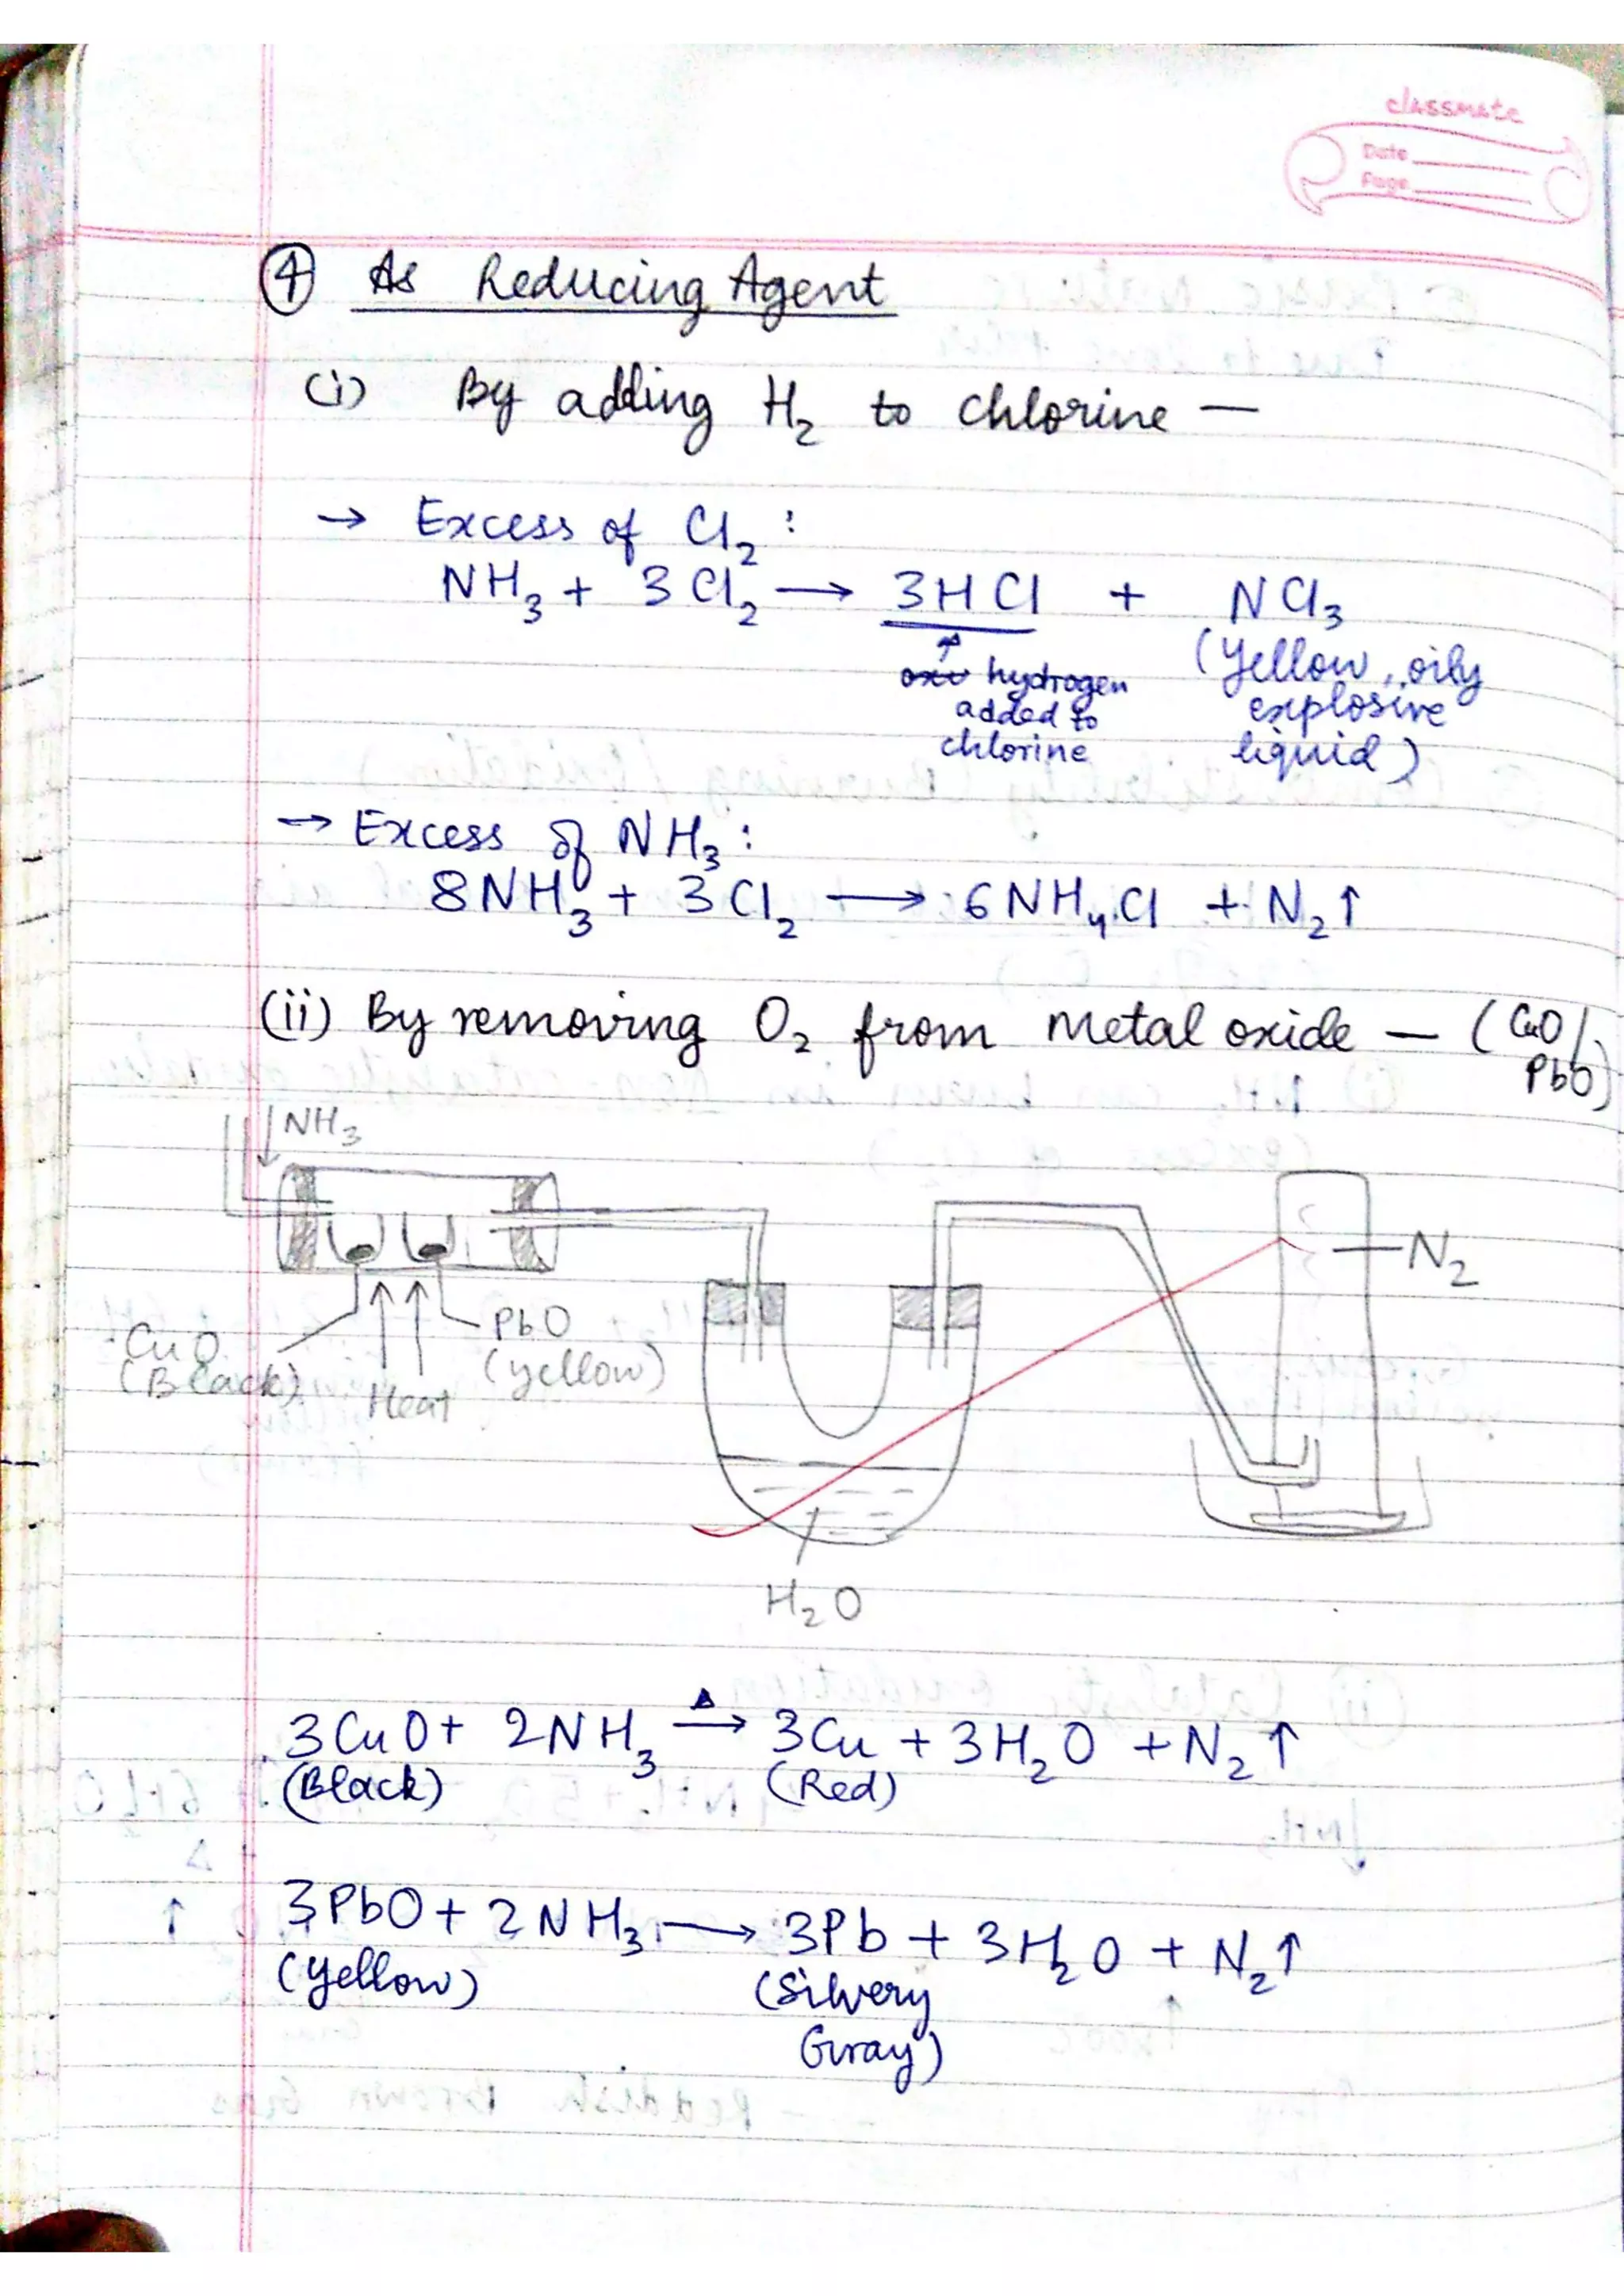 classmate
Date
Page
④ As Reducing Agent
(i) By adding H₂ to chlorine —
→ Excess of Cl₂ :
NH₃ + 3Cl₂ → 3HCl + NCl₃
hydrogen added to chlorine
(Yellow, oily explosive liquid)
→ Excess of NH₃ :
8NH₃ + 3Cl₂ → 6NH₄Cl + N₂↑
(ii) By removing O₂ from metal oxide — (CuO/
PbO)
↓NH₃
N₂
CuO
(Black)
Heat
PbO
(yellow)
H₂O
3CuO + 2NH₃ –Δ→ 3Cu + 3H₂O + N₂↑
(Black) (Red)
3PbO + 2NH₃ → 3Pb + 3H₂O + N₂↑
(yellow) (Silvery
Gray)